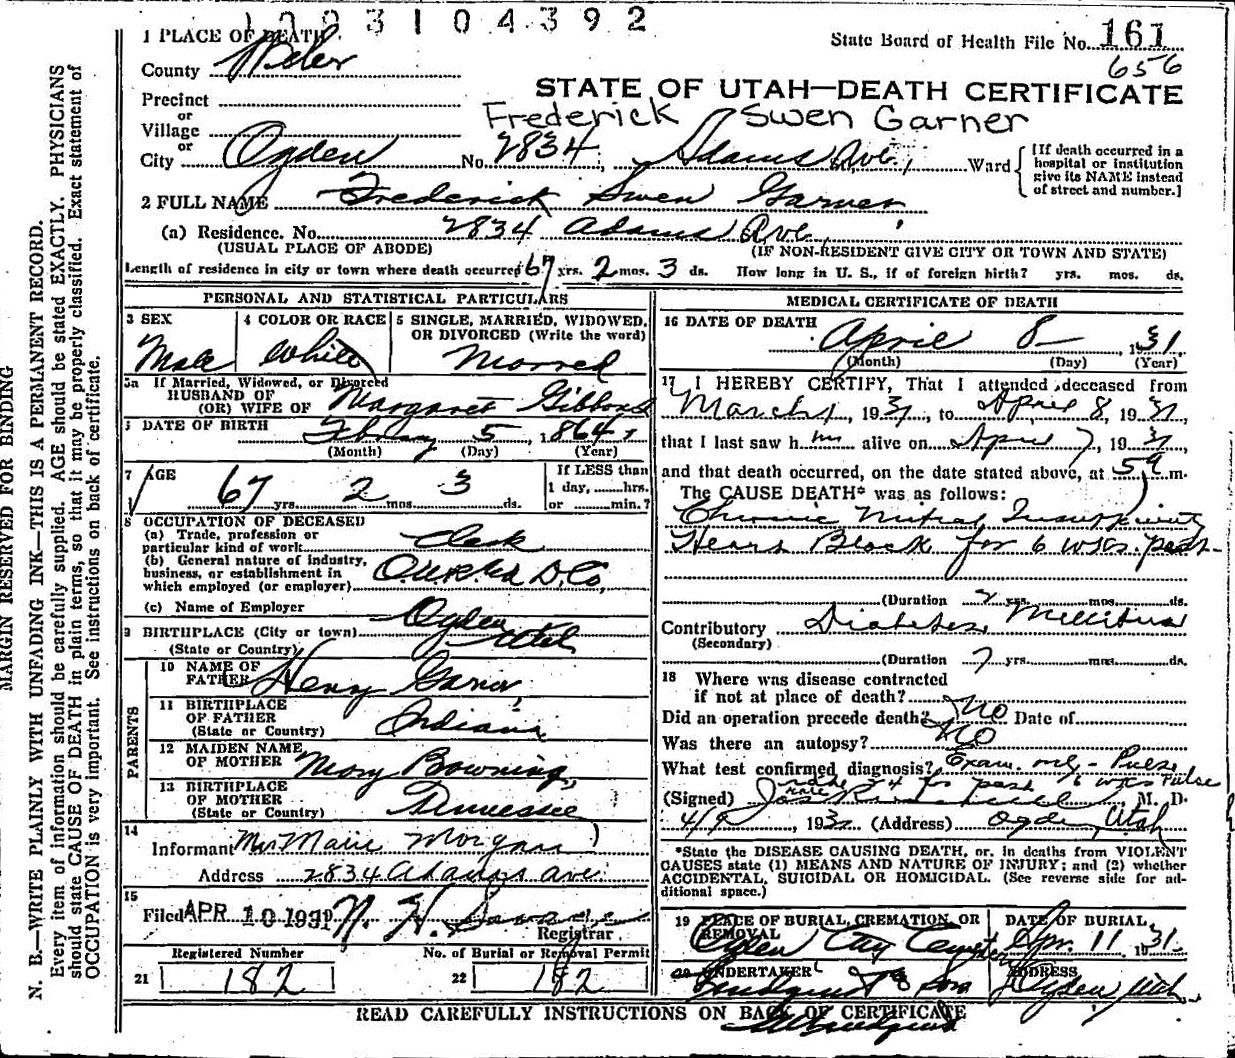 3 1 0 4 3 9 2
1 PLACE OF DEATH
State Board of Health File No. 161
County Weber
656
STATE OF UTAH—DEATH CERTIFICATE
Precinct
or
Village
Frederick Swen Garner
or
City Ogden No. 2834, Adams Ave., Ward
[If death occurred in a hospital or institution give its NAME instead of street and number.]
2 FULL NAME Frederick Swen Garner
(a) Residence. No. 2834 Adams Ave.
(USUAL PLACE OF ABODE) (IF NON-RESIDENT GIVE CITY OR TOWN AND STATE)
Length of residence in city or town where death occurred 67 yrs. 2 mos. 3 ds. How long in U. S., if of foreign birth? yrs. mos. ds.
PERSONAL AND STATISTICAL PARTICULARS
3 SEX Male
4 COLOR OR RACE White
5 SINGLE, MARRIED, WIDOWED, OR DIVORCED (Write the word)
5a If Married, Widowed, or Divorced
HUSBAND OF
(OR) WIFE OF Margaret Gibbons
DATE OF BIRTH 5 1864
(Month) (Day) (Year)
7 AGE 67 yrs. 2 mos. 3 ds.
If LESS than 1 day, hrs. or min.?
8 OCCUPATION OF DECEASED
(a) Trade, profession or particular kind of work Clerk
(b) General nature of industry, business, or establishment in which employed (or employer)
(c) Name of Employer
9 BIRTHPLACE (City or town) Ogden
(State or Country) Utah
PARENTS
10 NAME OF FATHER Henry Garner
11 BIRTHPLACE OF FATHER (State or Country) Indiana
12 MAIDEN NAME OF MOTHER Mary Browning
13 BIRTHPLACE OF MOTHER (State or Country) Tennessee
14 Informant Mrs Marie Morgan
Address 2834 Adams Ave.
15 Filed APR 10 1931 N. H. Savage
Registrar
Registered Number No. of Burial or Removal Permit
21 182 22 182
MEDICAL CERTIFICATE OF DEATH
16 DATE OF DEATH April 8 1931
(Month) (Day) (Year)
17 I HEREBY CERTIFY, That I attended deceased from
March 1, 1931, to April 8, 1931
that I last saw him alive on April 7, 1931
and that death occurred, on the date stated above, at 5 a m.
The CAUSE DEATH* was as follows:
Chronic Mitral Insufficiency
Heart Block for 6 wks. past
(Duration 2 yrs. mos. ds.
Contributory Diabetes Mellitus
(Secondary)
(Duration 7 yrs. mos. ds.
18 Where was disease contracted
if not at place of death?
Did an operation precede death? No Date of
Was there an autopsy? No
What test confirmed diagnosis? Exam. - Pulse
rate 24 for past 6 wks Pulse
(Signed) M. D.
4/9, 193 (Address) Ogden, Utah
*State the DISEASE CAUSING DEATH, or, in deaths from VIOLENT
CAUSES state (1) MEANS AND NATURE OF INJURY; and (2) whether
ACCIDENTAL, SUICIDAL OR HOMICIDAL. (See reverse side for additional space.)
19 PLACE OF BURIAL, CREMATION, OR REMOVAL Ogden City Cemetery
DATE OF BURIAL, Apr. 11 1931
20 UNDERTAKER Lindquist & Sons
ADDRESS Ogden Utah
READ CAREFULLY INSTRUCTIONS ON BACK OF CERTIFICATE
MARGIN RESERVED FOR BINDING
N. B.—WRITE PLAINLY WITH UNFADING INK—THIS IS A PERMANENT RECORD.
Every item of information should be carefully supplied. AGE should be stated EXACTLY. PHYSICIANS
should state CAUSE OF DEATH in plain terms, so that it may be properly classified. Exact statement of
OCCUPATION is very important. See instructions on back of certificate.